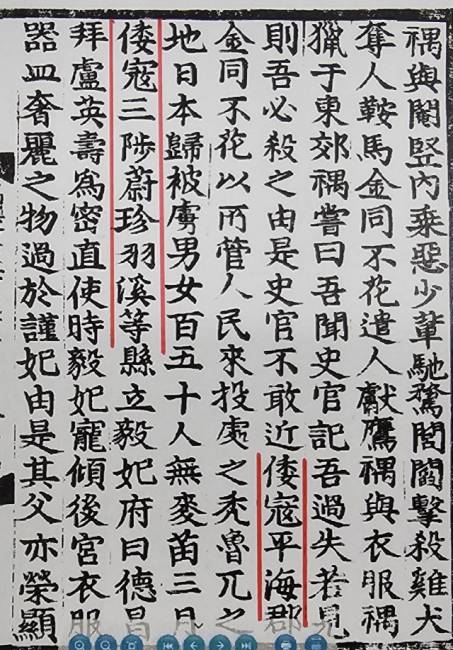 禑與閹竪內乘惡少輩馳騖閭閻擊殺雞犬
奪人鞍馬金同不花遣人獻鷹禑與衣服禑
獵于東郊禑嘗曰吾聞史官記吾過失若見
則吾必殺之由是史官不敢近倭寇平海郡
金同不花以所管人民來投處之禿魯兀之
地日本歸被虜男女百五十人無麥苗三月
倭寇三陟蔚珍羽溪等縣立毅妃府曰德昌
拜盧英壽爲密直使時毅妃寵傾後宮衣服
器皿奢麗之物過於謹妃由是其父亦榮顯